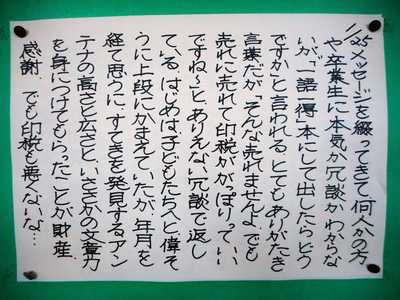 1/25メッセージを綴ってきて、何人かの方
や卒業生に本気か冗談かわからな
いが、「一語一得」本にして出したらどう
ですか」と言われる。とてもありがたき
言葉だが、そんな売れませんよ、でも
売れに売れて印税ががっぽりって、いい
ですね〜と、ありえない冗談で返し
ている。はじめは、子どもたちへと、偉そ
うに上段にかまえていたが、年月を
経て思うに、すてきを発見するアン
テナの高さと広さと、いささかの文章力
を身につけてもらったことが財産。
感謝。でも印税も悪くないな…